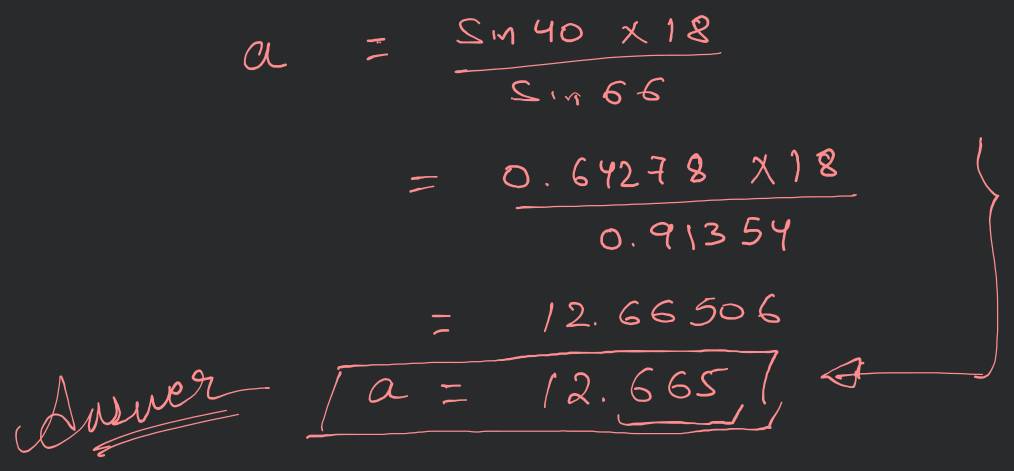 a = Sin 40 x 18
Sin 66
= 0.64278 x 18
0.91354
= 12.66506
Answer a = 12.665